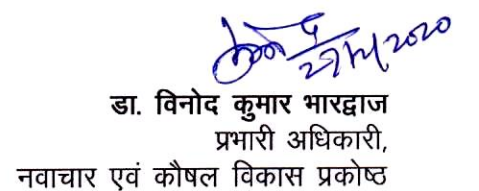 डा. विनोद कुमार भारद्वाज
प्रभारी अधिकारी,
नवाचार एवं कौषल विकास प्रकोष्ठ